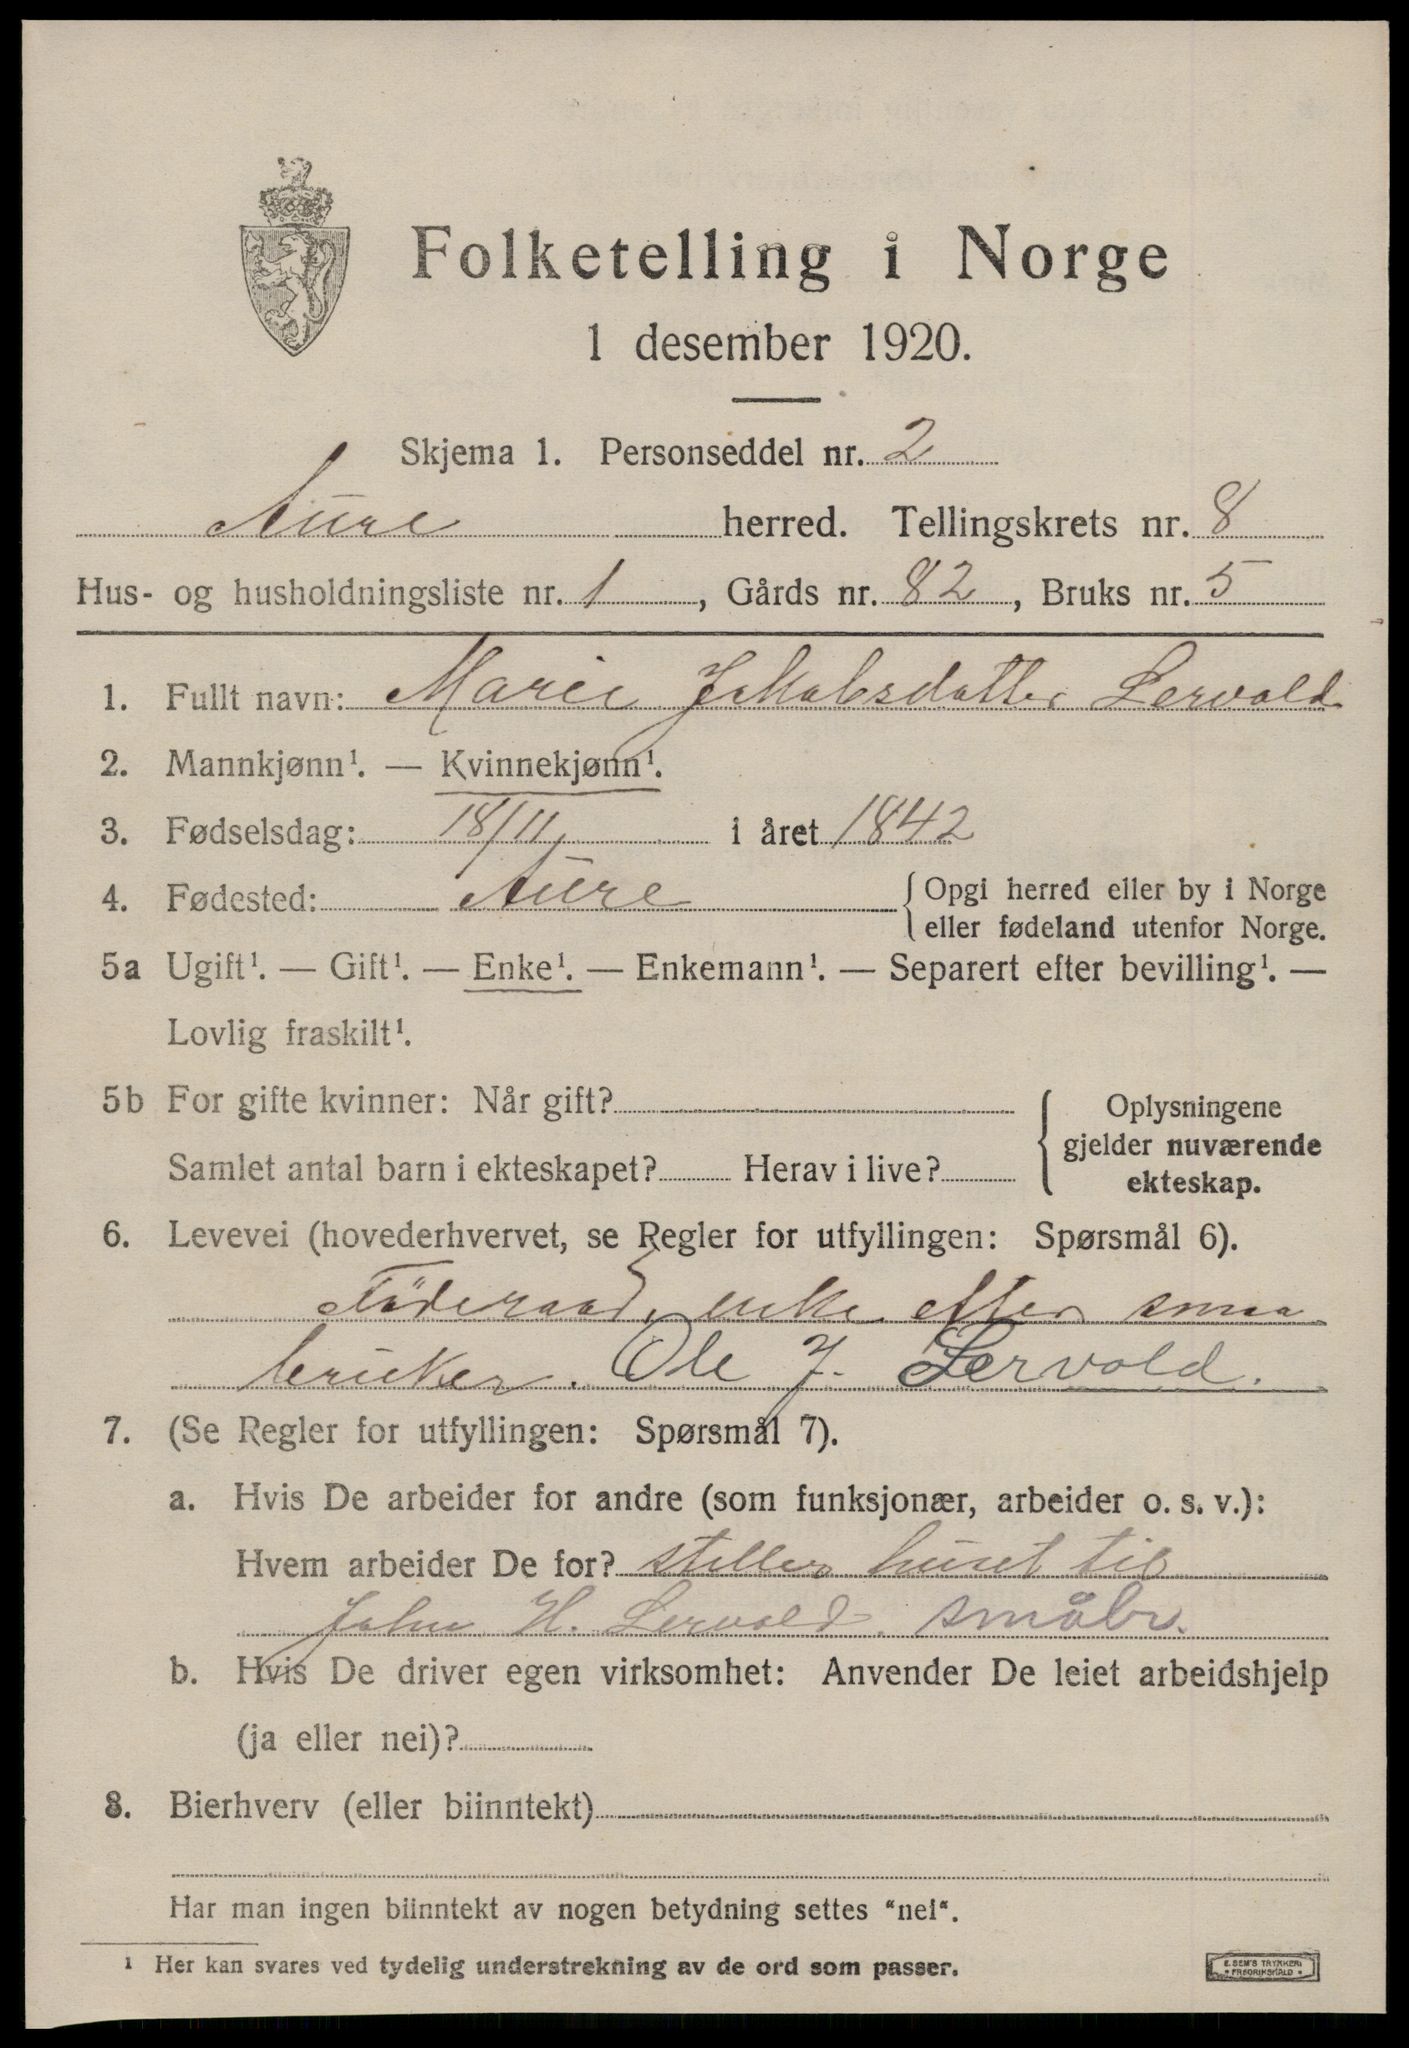 Folketelling i Norge
1 desember 1920.
Skjema 1. Personseddel nr. 2
Aure herred. Tellingskrets nr. 8
Hus- og husholdningsliste nr. 1, Gårds nr. 82, Bruks nr. 5
1. Fullt navn: Marie Jakobsdatter Lervold
2. Mannkjønn¹. — Kvinnekjønn¹.
3. Fødselsdag: 18/11 i året 1842
4. Fødested: Aure { Opgi herred eller by i Norge
eller fødeland utenfor Norge.
5a Ugift¹. — Gift¹. — Enke¹. — Enkemann¹. — Separert efter bevilling¹. —
Lovlig fraskilt¹.
5b For gifte kvinner: Når gift? { Oplysningene
gjelder nuværende
Samlet antal barn i ekteskapet? Herav i live?
ekteskap.
6. Levevei (hovederhvervet, se Regler for utfyllingen: Spørsmål 6).
Föderaad, enke efter smaa
bruker. Ole J. Lervold.
7. (Se Regler for utfyllingen: Spørsmål 7).
a. Hvis De arbeider for andre (som funksjonær, arbeider o. s. v.):
Hvem arbeider De for? steller huset til
John H. Lervold. småbr.
b. Hvis De driver egen virksomhet: Anvender De leiet arbeidshjelp
(ja eller nei)?
8. Bierhverv (eller biinntekt)
Har man ingen biinntekt av nogen betydning settes "nei".
¹ Her kan svares ved tydelig understrekning av de ord som passer.
E. SEM'S TRYKKERI
FREDRIKSHALD